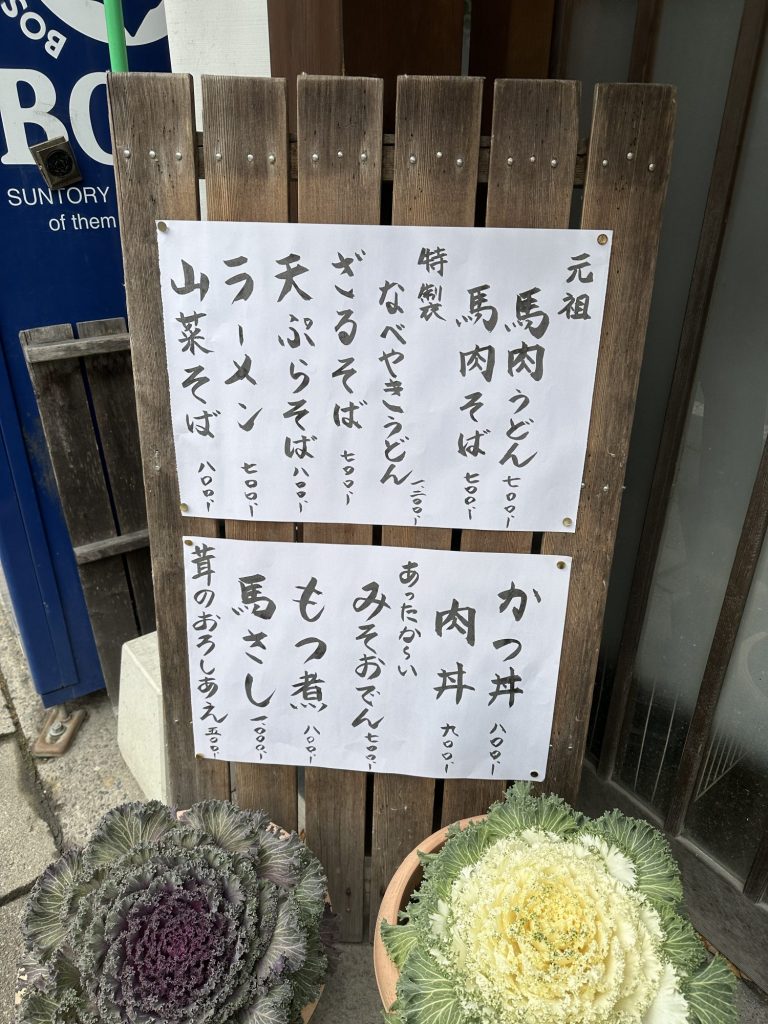 元祖
馬肉うどん 七〇〇、
馬肉そば 七〇〇、
特製
なべやきうどん 一、二〇〇、
ざるそば 七〇〇、
天ぷらそば 八〇〇、
ラーメン 七〇〇、
山菜そば 八〇〇、
かつ丼 八〇〇、
肉丼 九〇〇、
あったか〜い
みそおでん 七〇〇、
もつ煮 八〇〇、
馬さし 一、〇〇〇、
茸のおろしあえ 五〇〇、
BOS
BO
SUNTORY
of them